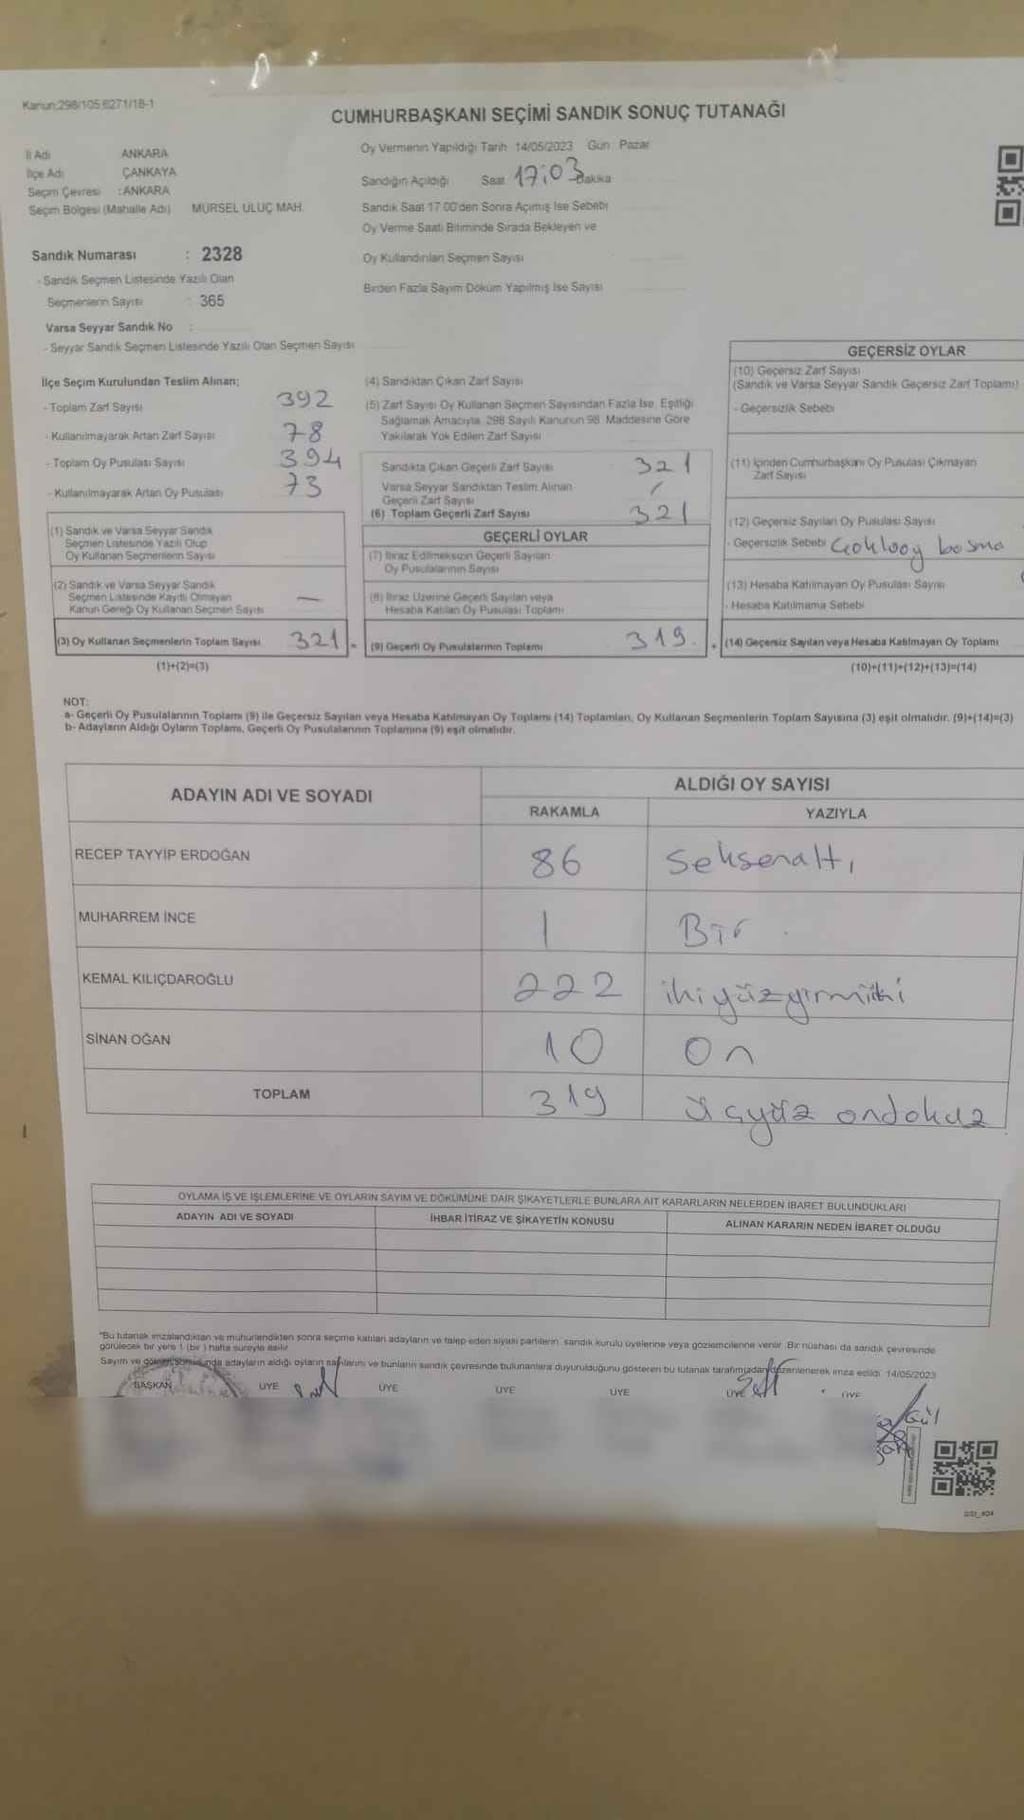 Kanun;298/105,6271/18-1
CUMHURBAŞKANI SEÇİMİ SANDIK SONUÇ TUTANAĞI
İl Adı ANKARA
İlçe Adı ÇANKAYA
Seçim Çevresi :ANKARA
Seçim Bölgesi (Mahalle Adı) MÜRSEL ULUÇ MAH.
Oy Vermenin Yapıldığı Tarih 14/05/2023 Gün: Pazar
Sandığın Açıldığı Saat 17:03 Dakika
Sandık Saat 17.00'den Sonra Açımış İse Sebebi
Oy Verme Saati Bitiminde Sırada Bekleyen ve
Oy Kullandırılan Seçmen Sayısı
Birden Fazla Sayım Döküm Yapılmış İse Sayısı
Sandık Numarası : 2328
- Sandık Seçmen Listesinde Yazılı Olan
Seçmenlerin Sayısı : 365
Varsa Seyyar Sandık No :
- Seyyar Sandık Seçmen Listesinde Yazılı Olan Seçmen Sayısı
İlçe Seçim Kurulundan Teslim Alınan;
- Toplam Zarf Sayısı 392
- Kullanılmayarak Artan Zarf Sayısı 78
- Toplam Oy Pusulası Sayısı 394
- Kullanılmayarak Artan Oy Pusulası 73
(1) Sandık ve Varsa Seyyar Sandık
Seçmen Listesinde Yazılı Olup
Oy Kullanan Seçmenlerin Sayısı
(2) Sandık ve Varsa Seyyar Sandık
Seçmen Listesinde Kayıtlı Olmayan
Kanun Gereği Oy Kullanan Seçmen Sayısı —
(3) Oy Kullanan Seçmenlerin Toplam Sayısı 321
(1)+(2)=(3)
(4) Sandıktan Çıkan Zarf Sayısı
(5) Zarf Sayısı Oy Kullanan Seçmen Sayısından Fazla İse, Eşitliği
Sağlamak Amacıyla, 298 Sayılı Kanunun 98. Maddesine Göre
Yakılarak Yok Edilen Zarf Sayısı
Sandıkta Çıkan Geçerli Zarf Sayısı 321
Varsa Seyyar Sandıktan Teslim Alınan
Geçerli Zarf Sayısı /
(6) Toplam Geçerli Zarf Sayısı 321
GEÇERLİ OYLAR
(7) İtiraz Edilmeksizin Geçerli Sayılan
Oy Pusulalarının Sayısı
(8) İtiraz Üzerine Geçerli Sayılan veya
Hesaba Katılan Oy Pusulası Toplamı
(9) Geçerli Oy Pusulalarının Toplamı 319.
GEÇERSİZ OYLAR
(10) Geçersiz Zarf Sayısı
(Sandık ve Varsa Seyyar Sandık Geçersiz Zarf Toplamı)
- Geçersizlik Sebebi
(11) İçinden Cumhurbaşkanı Oy Pusulası Çıkmayan
Zarf Sayısı
(12) Geçersiz Sayılan Oy Pusulası Sayısı
- Geçersizlik Sebebi basma
(13) Hesaba Katılmayan Oy Pusulası Sayısı
- Hesaba Katılmama Sebebi
(14) Geçersiz Sayılan veya Hesaba Katılmayan Oy Toplamı
(10)+(11)+(12)+(13)=(14)
NOT:
a- Geçerli Oy Pusulalarının Toplamı (9) ile Geçersiz Sayılan veya Hesaba Katılmayan Oy Toplamı (14) Toplamları, Oy Kullanan Seçmenlerin Toplam Sayısına (3) eşit olmalıdır. (9)+(14)=(3)
b- Adayların Aldığı Oyların Toplamı, Geçerli Oy Pusulalarının Toplamına (9) eşit olmalıdır.
ADAYIN ADI VE SOYADI
ALDIĞI OY SAYISI
RAKAMLA YAZIYLA
RECEP TAYYİP ERDOĞAN 86 Seksenaltı
MUHARREM İNCE 1 Bir
KEMAL KILIÇDAROĞLU 222 ikiyüzyirmiiki
SİNAN OĞAN 10 On
TOPLAM 319 üçyüz ondokuz
OYLAMA İŞ VE İŞLEMLERİNE VE OYLARIN SAYIM VE DÖKÜMÜNE DAİR ŞİKAYETLERLE BUNLARA AİT KARARLARIN NELERDEN İBARET BULUNDUKLARI
ADAYIN ADI VE SOYADI İHBAR İTİRAZ VE ŞİKAYETİN KONUSU ALINAN KARARIN NEDEN İBARET OLDUĞU
*Bu tutanak imzalandıktan ve mühürlendikten sonra seçime katılan adayların ve talep eden siyasi partilerin, sandık kurulu üyelerine veya gözlemcilerine verilir. Bir nüshası da sandık çevresinde
görülecek bir yere 1 (bir) hafta süreyle asılır.
Sayım ve döküm sonunda adayların aldığı oyların sayılarını ve bunların sandık çevresinde bulunanlara duyurulduğunu gösteren bu tutanak tarafımızdan düzenlenerek imza edildi. 14/05/2023
BAŞKAN ÜYE ÜYE ÜYE ÜYE ÜYE ÜYE
Gül